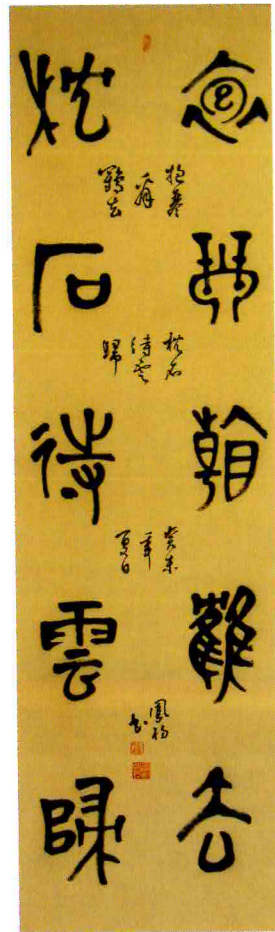 抱琴看鶴去
枕石待雲歸
抱琴
看
鶴去
枕石
待雲
歸
癸未
年
夏日
鳳
書